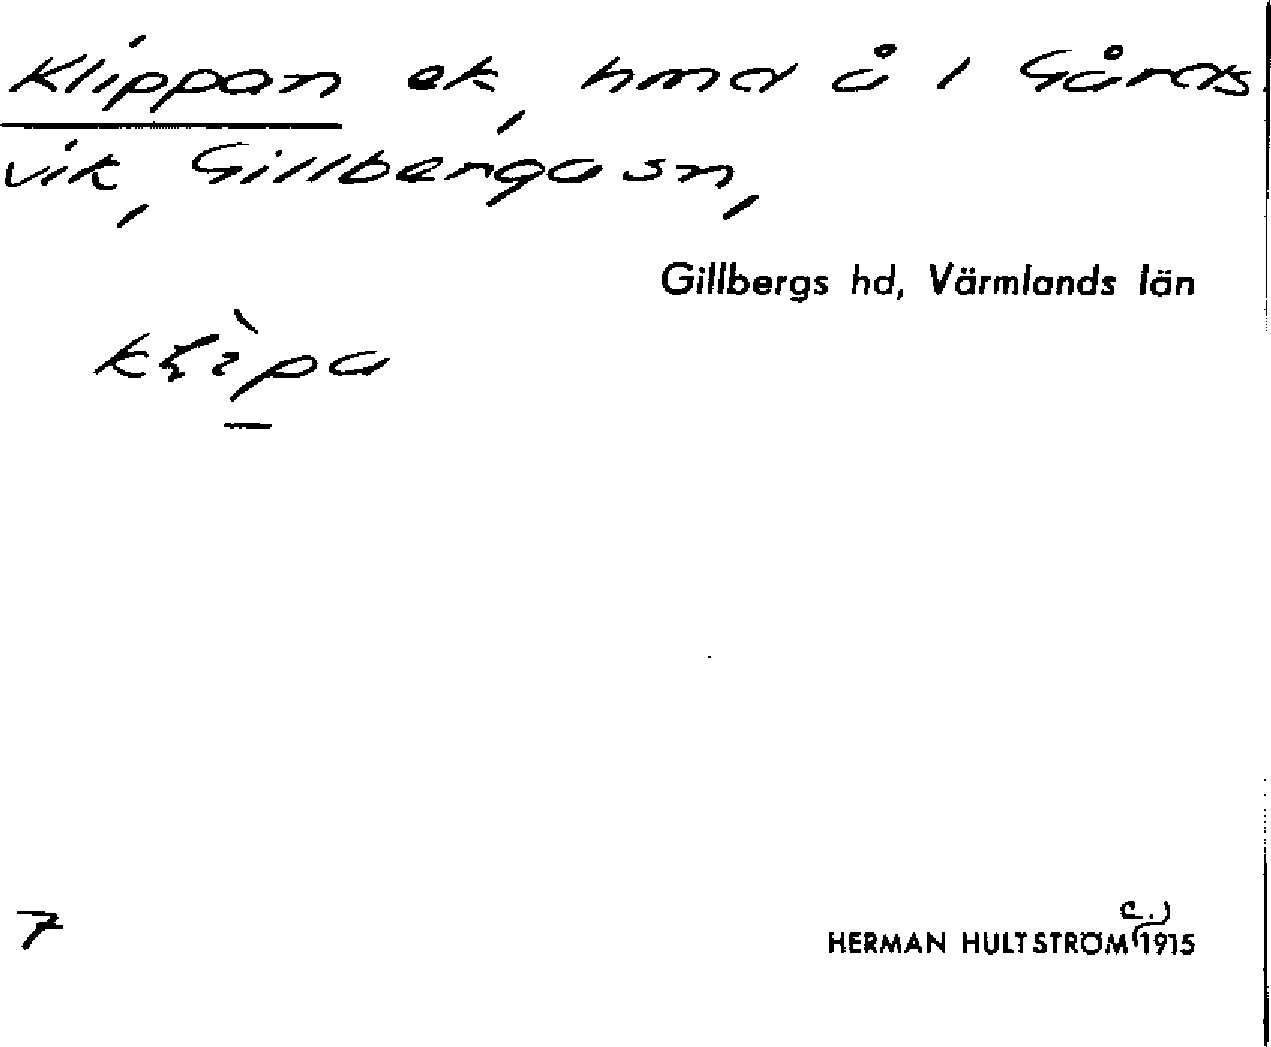 Klippan ek, hmd å 1 Gårds
vik, Gillbergasn,
Gillbergs hd, Värmlands län
7
c.)
HERMAN HULTSTRÖM 1915